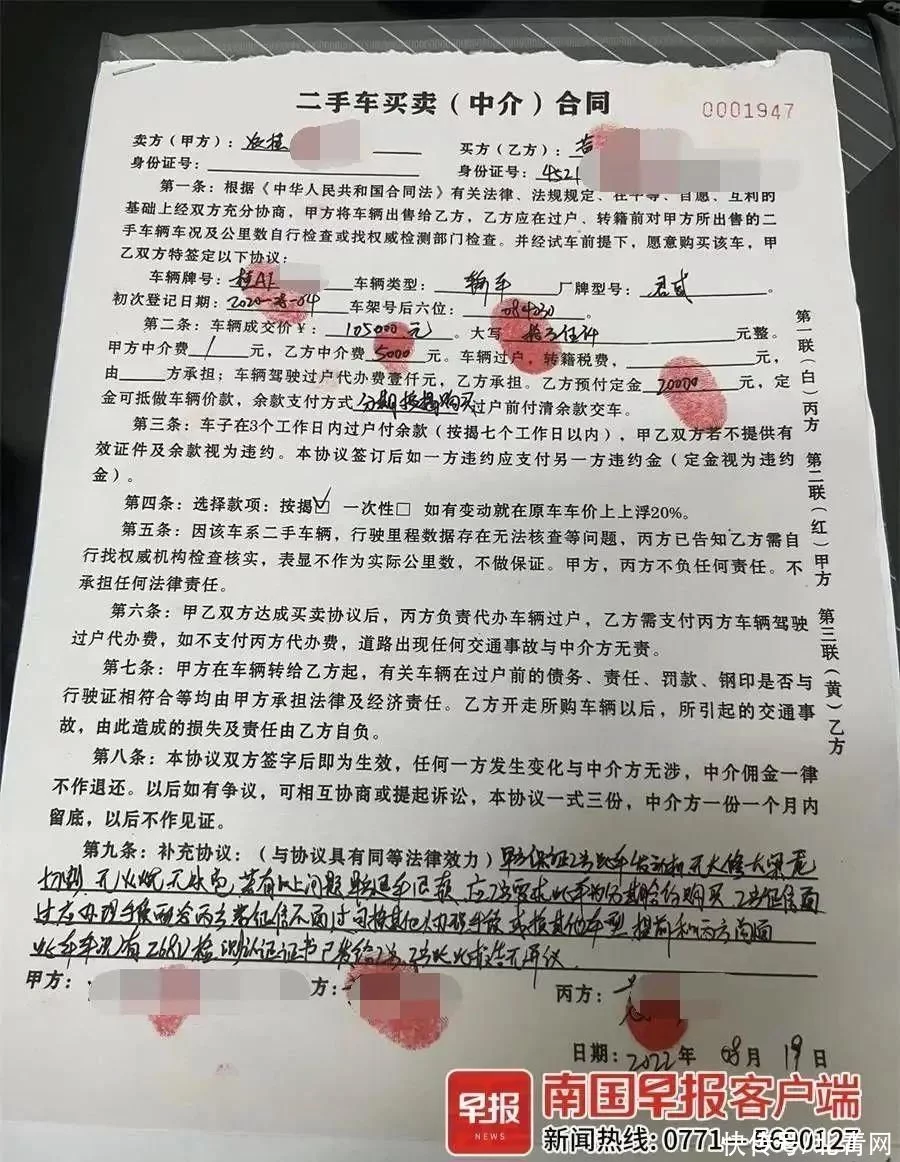 二手车买卖（中介）合同
0001947
卖方（甲方）：
买方（乙方）：吉
身份证号：
身份证号：4521
第一条：根据《中华人民共和国合同法》有关法律、法规规定、在平等、自愿、互利的
基础上经双方充分协商，甲方将车辆出售给乙方，乙方应在过户、转籍前对甲方所出售的二
手车辆车况及公里数自行检查或找权威检测部门检查。并经试车前提下，愿意购买该车，甲
乙双方特签定以下协议：
车辆牌号：桂A1 车辆类型：轿车 厂牌型号：君威。
初次登记日期：2020- -04 车架号后六位：084230。
第二条：车辆成交价￥：105000元。大写 元整。
甲方中介费/元，乙方中介费5000元。车辆过户，转籍税费，元，
由——方承担；车辆驾驶过户代办费壹仟元，乙方承担。乙方预付定金20000元，定
金可抵做车辆价款，余款支付方式分期按揭购买过户前付清余款交车。
第三条：车子在3个工作日内过户付余款（按揭七个工作日以内），甲乙双方若不提供有
效证件及余款视为违约。本协议签订后如一方违约应支付另一方违约金（定金视为违约
金）。
第四条：选择款项：按揭☑ 一次性□ 如有变动就在原车车价上上浮20%。
第五条：因该车系二手车辆，行驶里程数据存在无法核查等问题，丙方已告知乙方需自
行找权威机构检查核实，表显不作为实际公里数，不做保证。甲方，丙方不负任何责任。不
承担任何法律责任。
第六条：甲乙双方达成买卖协议后，丙方负责代办车辆过户，乙方需支付丙方车辆驾驶
过户代办费，如不支付丙方代办费，道路出现任何交通事故与中介方无责。
第七条：甲方在车辆转给乙方起，有关车辆在过户前的债务、责任、罚款、钢印是否与
行驶证相符合等均由甲方承担法律及经济责任。乙方开走所购车辆以后，所引起的交通事
故，由此造成的损失及责任由乙方自负。
第八条：本协议双方签字后即为生效，任何一方发生变化与中介方无涉，中介佣金一律
不作退还。以后如有争议，可相互协商或提起诉讼，本协议一式三份，中介方一份一个月内
留底，以后不作见证。
第九条：补充协议：（与协议具有同等法律效力）甲方保证乙方此车发动机无大修大梁无
切割 无火烧无水泡 若有以上问题 退车退款 应乙方要求此车为分期合约购买 乙方征信面
过后办理手续配合丙方 若征信不通过 可换其他人办理手续 或换其他车型 提前和丙方沟通
此车车况有268V检测认证证书已发给乙方，乙方
甲方：
方：
丙方：
日期：2022年08月19日
第一联（白）丙方
第二联（红）甲方
第三联（黄）乙方
早报
NEWS
南国早报客户端
新闻热线：0771-5690127
快传号/北青网